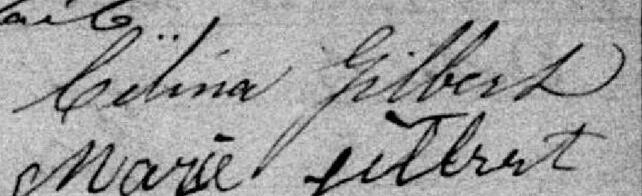 Célina Gilbert
Marie Gilbert